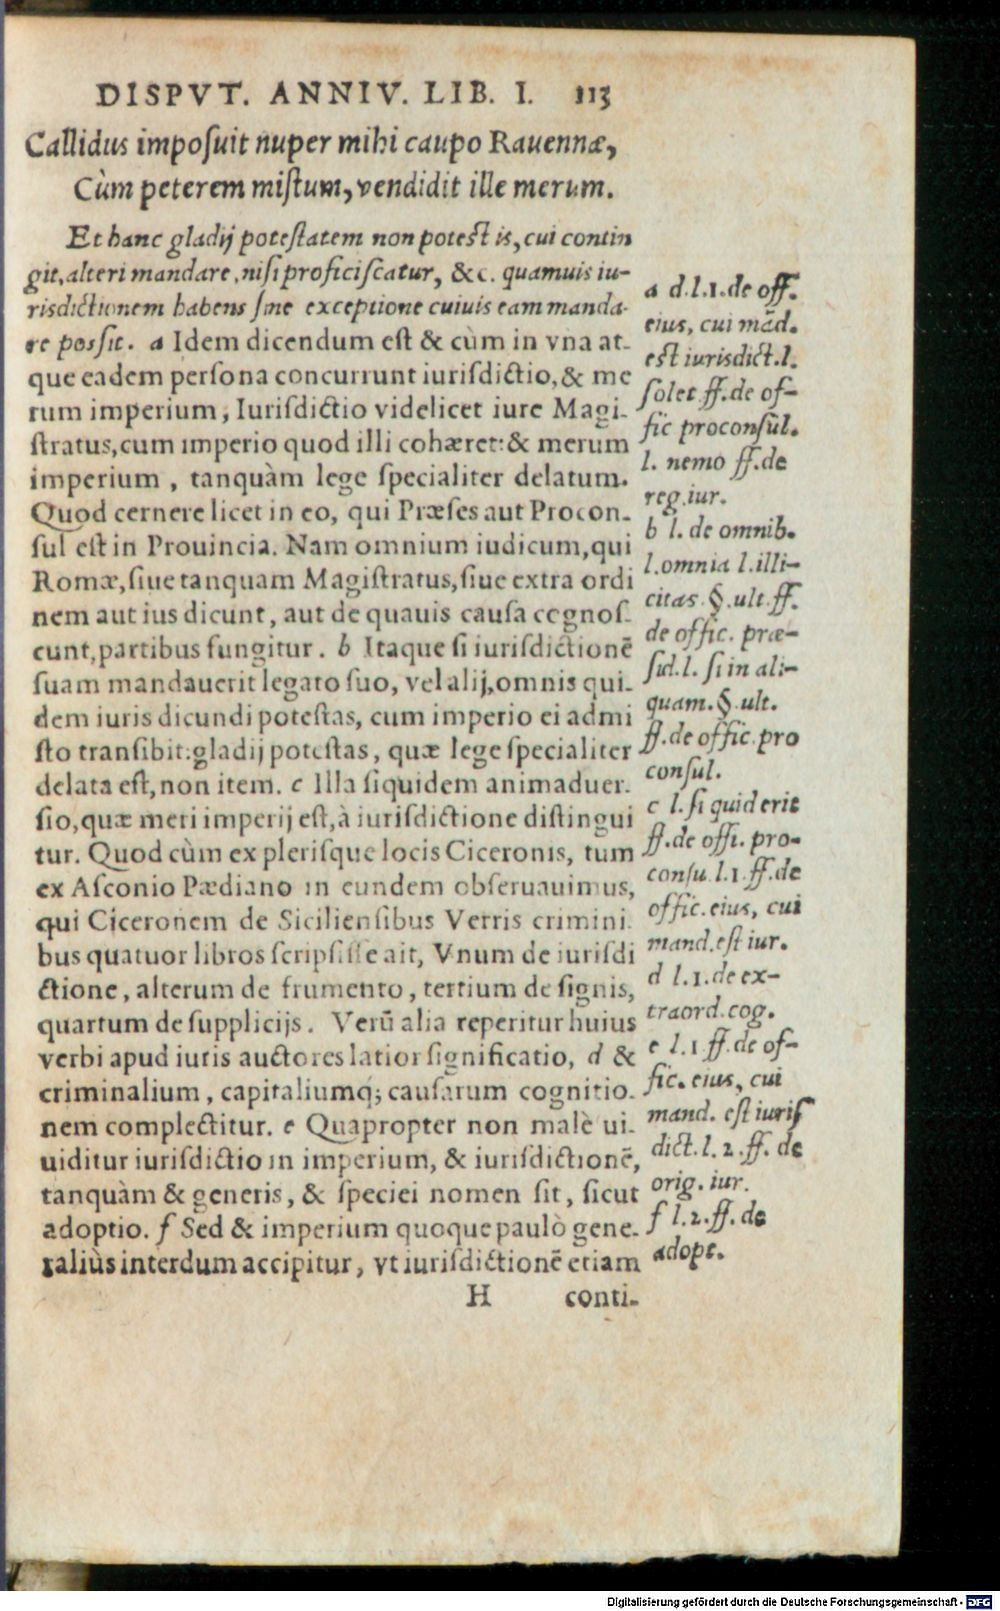 DISPVT. ANNIV. LIB. I. 113
Callidus imposuit nuper mihi caupo Rauennæ,
Cùm peterem mistum, vendidit ille merum.
Et hanc gladij potestatem non potest is, cui contin
git, alteri mandare, nisi proficiscatur, &c. quamuis iu-
risdictionem habens sine exceptione cuiuis eam manda-
re possit. a Idem dicendum est & cùm in vna at-
que eadem persona concurrunt iurisdictio, & me
rum imperium, Iurisdictio videlicet iure Magi-
stratus, cum imperio quod illi cohæret: & merum
imperium, tanquàm lege specialiter delatum.
Quod cernere licet in eo, qui Præses aut Procon-
sul est in Prouincia. Nam omnium iudicum, qui
Romæ, siue tanquam Magistratus, siue extra ordi
nem aut ius dicunt, aut de quauis causa cognos-
cunt, partibus fungitur. b Itaque si iurisdictionē
suam mandauerit legato suo, vel alij, omnis qui-
dem iuris dicundi potestas, cum imperio ei admi
sto transibit: gladij potestas, quæ lege specialiter
delata est, non item. c Illa siquidem animaduer-
sio, quæ meri imperij est, à iurisdictione distingui
tur. Quod cùm ex plerisque locis Ciceronis, tum
ex Asconio Pædiano in eundem obseruauimus,
qui Ciceronem de Siciliensibus Verris crimini-
bus quatuor libros scripsisse ait, Vnum de iurisdi
ctione, alterum de frumento, tertium de signis,
quartum de supplicijs. Verū alia reperitur huius
verbi apud iuris auctores latior significatio, d &
criminalium, capitaliumq; causarum cognitio-
nem complectitur. e Quapropter non malè ui-
uiditur iurisdictio in imperium, & iurisdictionē,
tanquàm & generis, & speciei nomen sit, sicut
adoptio. f Sed & imperium quoque paulò gene-
raliùs interdum accipitur, vt iurisdictionē etiam
H conti-
a d.l.1. de off.
eius, cui mād.
est iurisdict. l.
solet ff. de of-
fic proconsul.
l. nemo ff. de
reg. iur.
b l. de omnib.
l. omnia l. illi-
citas §. ult ff.
de offic. præ-
sid. l. si in ali-
quam. §. ult.
ff. de offic. pro
consul.
c l. si quid erit
ff. de offi. pro-
consu. l. 1 ff. de
offic. eius, cui
mand. est iur.
d l. 1. de ex-
traord. cog.
e l. 1 ff. de of-
fic. eius, cui
mand. est iuris
dict. l. 2. ff. de
orig. iur.
f l. 2. ff. de
adopt.
Digitalisierung gefördert durch die Deutsche Forschungsgemeinschaft - DFG